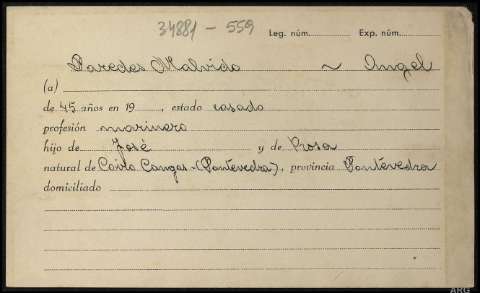 34881 - 559 Leg. núm. Exp. núm.
Paredes Malvido ~ Angel
(a)
de 45 años en 19 , estado casado
profesión marinero
hijo de José y de Rosa
natural de Coiro Cangas (Pontevedra), provincia Pontevedra
domiciliado
ARG